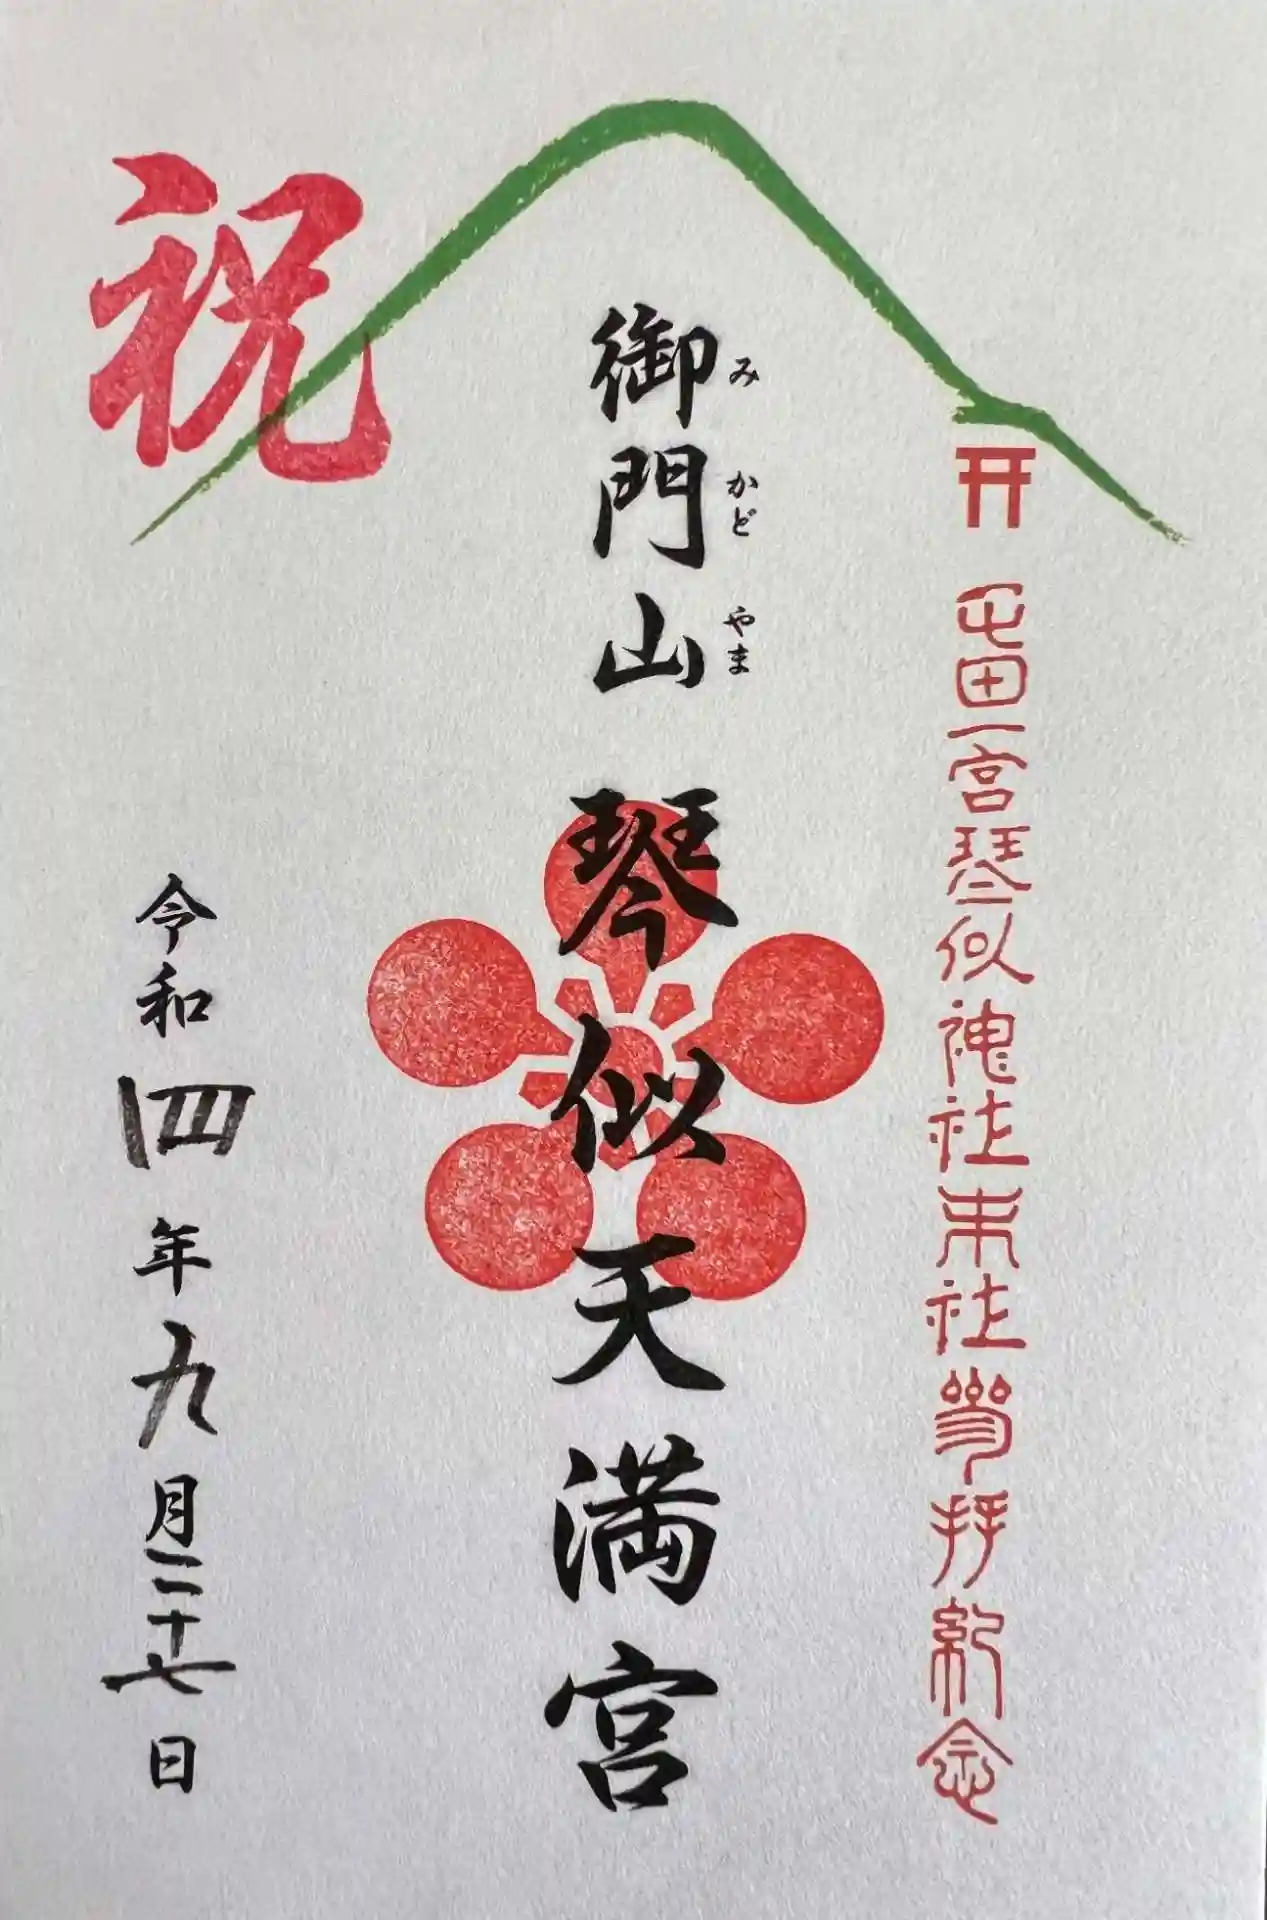 屯田一宮琴似神社末社参拝紀念
御門山 琴似天満宮
み かど やま
祝
令和四年九月二十七日